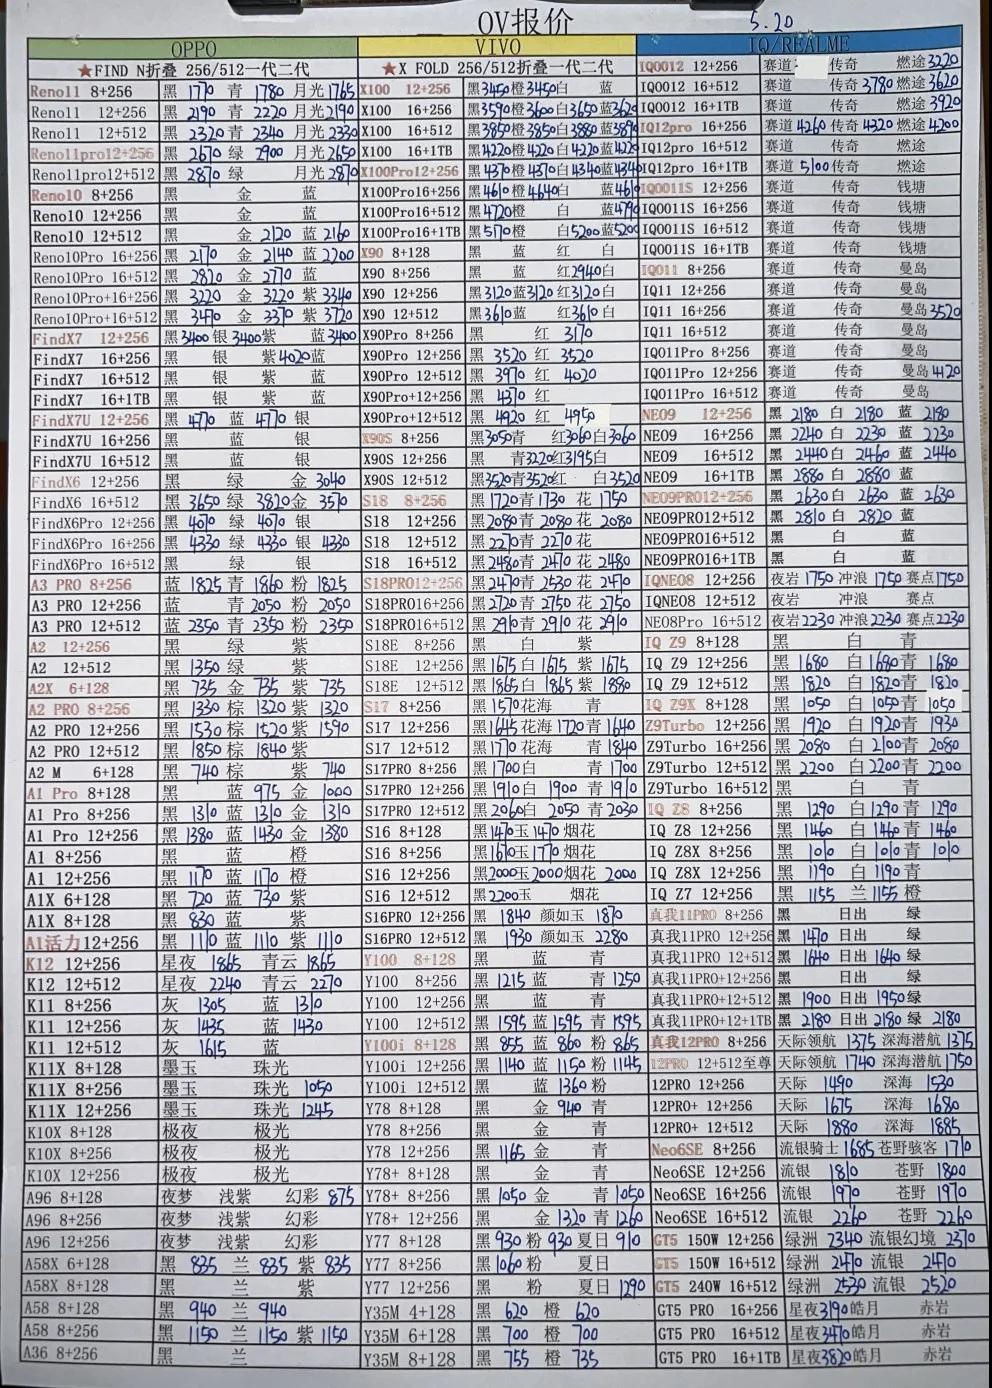 OV报价
5.20
OPPO
★FIND N折叠 256/512一代二代
Reno11 8+256 黑 1770 青 1780 月光 1765
Reno11 12+256 黑 2190 青 2220 月光 2190
Reno11 12+512 黑 2320 青 2340 月光 2330
Reno11pro12+256 黑 2670 绿 2900 月光 2650
Reno11pro12+512 黑 2870 绿 月光 2870
Reno10 8+256 黑 金 蓝
Reno10 12+256 黑 金 蓝
Reno10 12+512 黑 金 2120 蓝 2160
Reno10Pro 16+256 黑 2170 金 2140 蓝 2200
Reno10Pro 16+512 黑 2820 金 2770 蓝
Reno10Pro+16+256 黑 3220 金 3220 紫 3340
Reno10Pro+16+512 黑 3470 金 3370 紫 3720
FindX7 12+256 黑 3400 银 3400 紫 蓝 3400
FindX7 16+256 黑 银 紫 4020 蓝
FindX7 16+512 黑 银 紫 蓝
FindX7 16+1TB 黑 银 紫 蓝
FindX7U 12+256 黑 4770 蓝 4770 银
FindX7U 16+256 黑 蓝 银
FindX7U 16+512 黑 蓝 银
FindX6 12+256 黑 绿 金 3040
FindX6 16+512 黑 3650 绿 3820 金 3570
FindX6Pro 12+256 黑 4070 绿 4070 银
FindX6Pro 16+256 黑 4330 绿 4330 银 4330
FindX6Pro 16+512 黑 绿 银
A3 PRO 8+256 蓝 1825 青 1860 粉 1825
A3 PRO 12+256 蓝 青 2050 粉 2050
A3 PRO 12+512 蓝 2350 青 2350 粉 2350
A2 12+256 黑 绿 紫
A2 12+512 黑 1350 绿 紫
A2X 6+128 黑 735 金 735 紫 735
A2 PRO 8+256 黑 1330 棕 1320 紫 1320
A2 PRO 12+256 黑 1530 棕 1520 紫 1590
A2 PRO 12+512 黑 1850 棕 1840 紫
A2 M 6+128 黑 740 棕 紫 740
A1 Pro 8+128 黑 蓝 975 金 1000
A1 Pro 8+256 黑 1310 蓝 1310 金 1310
A1 Pro 12+256 黑 1380 蓝 1430 金 1380
A1 8+256 黑 蓝 橙
A1 12+256 黑 1170 蓝 1170 橙
A1X 6+128 黑 720 蓝 730 紫
A1X 8+128 黑 830 蓝 紫
A1活力12+256 黑 1110 蓝 1110 紫 1110
K12 12+256 星夜 1865 青云 1865
K12 12+512 星夜 2240 青云 2270
K11 8+256 灰 1305 蓝 1310
K11 12+256 灰 1435 蓝 1430
K11 12+512 灰 1615 蓝
K11X 8+128 墨玉 珠光
K11X 8+256 墨玉 珠光 1050
K11X 12+256 墨玉 珠光 1245
K10X 8+128 极夜 极光
K10X 8+256 极夜 极光
K10X 12+256 极夜 极光
A96 8+128 夜梦 浅紫 幻彩 875
A96 8+256 夜梦 浅紫 幻彩
A96 12+256 夜梦 浅紫 幻彩
A58X 6+128 黑 835 兰 835 紫 835
A58X 8+128 黑 兰 紫
A58 8+128 黑 940 兰 940
A58 8+256 黑 1150 兰 1150 紫 1150
A36 8+256 黑 兰
VIVO
★X FOLD 256/512折叠一代二代
X100 12+256 黑3450橙3450白 蓝
X100 16+256 黑3590橙3600白3650蓝3620
X100 16+512 黑3850橙3850白3880蓝3890
X100 16+1TB 黑4220橙4220白4220蓝4220
X100Pro12+256 黑4370橙4370白4340蓝4340
X100Pro16+256 黑4610橙4640白 蓝4610
X100Pro16+512 黑4720橙 白 蓝4790
X100Pro16+1TB 黑5170橙 白5200蓝5200
X90 8+128 黑 蓝 红 白
X90 8+256 黑 蓝 红2940白
X90 12+256 黑3120蓝3120红3120白
X90 12+512 黑3610蓝 红3610白
X90Pro 8+256 黑 红 3170
X90Pro 12+256 黑 3520 红 3520
X90Pro 12+512 黑 3970 红 4020
X90Pro+12+256 黑 4370 红
X90Pro+12+512 黑 4920 红 4950
X90S 8+256 黑3050青 红3060白3060
X90S 12+256 黑 青3220红3195白
X90S 12+512 黑3520青3520红 白3520
S18 8+256 黑1720青1730 花 1750
S18 12+256 黑2080青2080 花 2080
S18 12+512 黑2270青2270 花
S18 16+512 黑2480青2470 花 2480
S18PRO12+256 黑2470青 2530 花 2470
S18PRO16+256 黑2720青 2750 花 2750
S18PRO16+512 黑2910青 2910 花 2910
S18E 8+256 黑 白 紫
S18E 12+256 黑1675白1675 紫 1675
S18E 12+512 黑1865白 1865 紫 1880
S17 8+256 黑1570花海 青
S17 12+256 黑1645花海 1720青 1640
S17 12+512 黑1770花海 青 1840
S17PRO 8+256 黑1700白 青 1700
S17PRO 12+256 黑1910白 1900 青 1910
S17PRO 12+512 黑2060白 2050 青 2030
S16 8+128 黑1470玉1470 烟花
S16 8+256 黑1610玉1770 烟花
S16 12+256 黑2000玉2000烟花 2000
S16 12+512 黑2200玉 烟花
S16PRO 12+256 黑 1840 颜如玉 1870
S16PRO 12+512 黑 1930 颜如玉 2280
Y100 8+128 黑 蓝 青
Y100 8+256 黑 1215 蓝 青 1250
Y100 12+256 黑 蓝 青
Y100 12+512 黑 1595 蓝 1595 青 1595
Y100i 8+128 黑 855 蓝 860 粉 865
Y100i 12+256 黑 1140 蓝 1150 粉 1145
Y100i 12+512 黑 蓝 1360 粉
Y78 8+128 黑 金 940 青
Y78 8+256 黑 金 青
Y78 12+256 黑 1165 金 青
Y78+ 8+128 黑 金 青
Y78+ 8+256 黑 1050 金 青 1050
Y78+ 12+256 黑 金 1320 青 1260
Y77 8+128 黑 930 粉 930 夏日 910
Y77 8+256 黑 1060 粉 夏日
Y77 12+256 黑 粉 夏日 1290
Y35M 4+128 黑 620 橙 620
Y35M 6+128 黑 700 橙 700
Y35M 8+128 黑 755 橙 735
IQ/REALME
IQ0012 12+256 赛道 传奇 燃途 3220
IQ0012 16+512 赛道 传奇 3780 燃途 3620
IQ0012 16+1TB 赛道 传奇 燃途 3920
IQ12pro 16+256 赛道 4260 传奇 4320 燃途 4200
IQ12pro 16+512 赛道 传奇 燃途
IQ12pro 16+1TB 赛道 5100 传奇 燃途
IQ0011S 12+256 赛道 传奇 钱塘
IQ0011S 16+256 赛道 传奇 钱塘
IQ0011S 16+512 赛道 传奇 钱塘
IQ0011S 16+1TB 赛道 传奇 钱塘
IQ011 8+256 赛道 传奇 曼岛
IQ11 12+256 赛道 传奇 曼岛
IQ11 16+256 赛道 传奇 曼岛 3520
IQ11 16+512 赛道 传奇 曼岛
IQ011Pro 8+256 赛道 传奇 曼岛
IQ011Pro 12+256 赛道 传奇 曼岛 4120
IQ011Pro 16+512 赛道 传奇 曼岛
NE09 12+256 黑 2180 白 2180 蓝 2180
NE09 16+256 黑 2240 白 2230 蓝 2230
NE09 16+512 黑 2440 白 2460 蓝 2440
NE09 16+1TB 黑 2880 白 2880 蓝
NE09PRO12+256 黑 2630 白 2630 蓝 2630
NE09PRO12+512 黑 2810 白 2820 蓝
NE09PRO16+512 黑 白 蓝
NE09PRO16+1TB 黑 白 蓝
IQNE08 12+256 夜岩 1750 冲浪 1750 赛点 1750
IQNE08 12+512 夜岩 冲浪 赛点
NE08Pro 16+512 夜岩 2230 冲浪 2230 赛点 2230
IQ Z9 8+128 黑 白 青
IQ Z9 12+256 黑 1680 白 1680 青 1680
IQ Z9 12+512 黑 1820 白 1820 青 1820
IQ Z9X 8+128 黑 1050 白 1050 青 1050
Z9Turbo 12+256 黑 1920 白 1920 青 1930
Z9Turbo 16+256 黑 2080 白 2100 青 2080
Z9Turbo 12+512 黑 2200 白 2200 青 2200
Z9Turbo 16+512 黑 白 青
IQ Z8 8+256 黑 1290 白 1290 青 1290
IQ Z8 12+256 黑 1460 白 1460 青 1460
IQ Z8X 8+256 黑 1010 白 1010 青 1010
IQ Z8X 12+256 黑 1190 白 1190 青
IQ Z7 12+256 黑 1155 兰 1155 橙
真我11PRO 8+256 黑 日出 绿
真我11PRO 12+256 黑 1470 日出 绿
真我11PRO 12+512 黑 1640 日出 1640 绿
真我11PRO+12+256 黑 日出 绿
真我11PRO+12+512 黑 1900 日出 1950 绿
真我11PRO+12+1TB 黑 2180 日出 2180 绿 2180
真我12PRO 8+256 天际领航 1375 深海潜航 1375
12PRO 12+512至尊 天际领航 1740 深海潜航 1750
12PRO 12+256 天际 1490 深海 1530
12PRO+ 12+256 天际 1675 深海 1680
12PRO+ 12+512 天际 1880 深海 1885
Neo6SE 8+256 流银骑士 1685 苍野骇客 1710
Neo6SE 12+256 流银 1810 苍野 1800
Neo6SE 16+256 流银 1970 苍野 1970
Neo6SE 16+512 流银 2260 苍野 2260
GT5 150W 12+256 绿洲 2340 流银幻境 2370
GT5 150W 16+512 绿洲 2470 流银 2470
GT5 240W 16+512 绿洲 2530 流银 2520
GT5 PRO 16+256 星夜3190皓月 赤岩
GT5 PRO 16+512 星夜3470皓月 赤岩
GT5 PRO 16+1TB 星夜3820皓月 赤岩